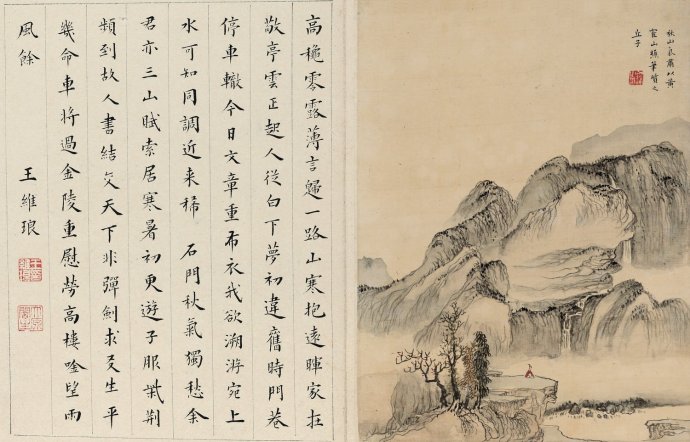 秋山氣肅以黃
寉山樵筆寫之
高穐零露薄言歸一路山寒抱遠暉家在
敬亭雲正起人從白下夢初違舊時門巷
停車轍今日文章重布衣我欲溯游宛上
水可知同調近来稀 石門秋氣獨愁余
君亦三山賦索居寒暑初更遊子服柴荆
頻到故人書結交天下非彈劍求友生平
幾命車将過金陵重慰勞高樓唫望雨
風餘
王維琅